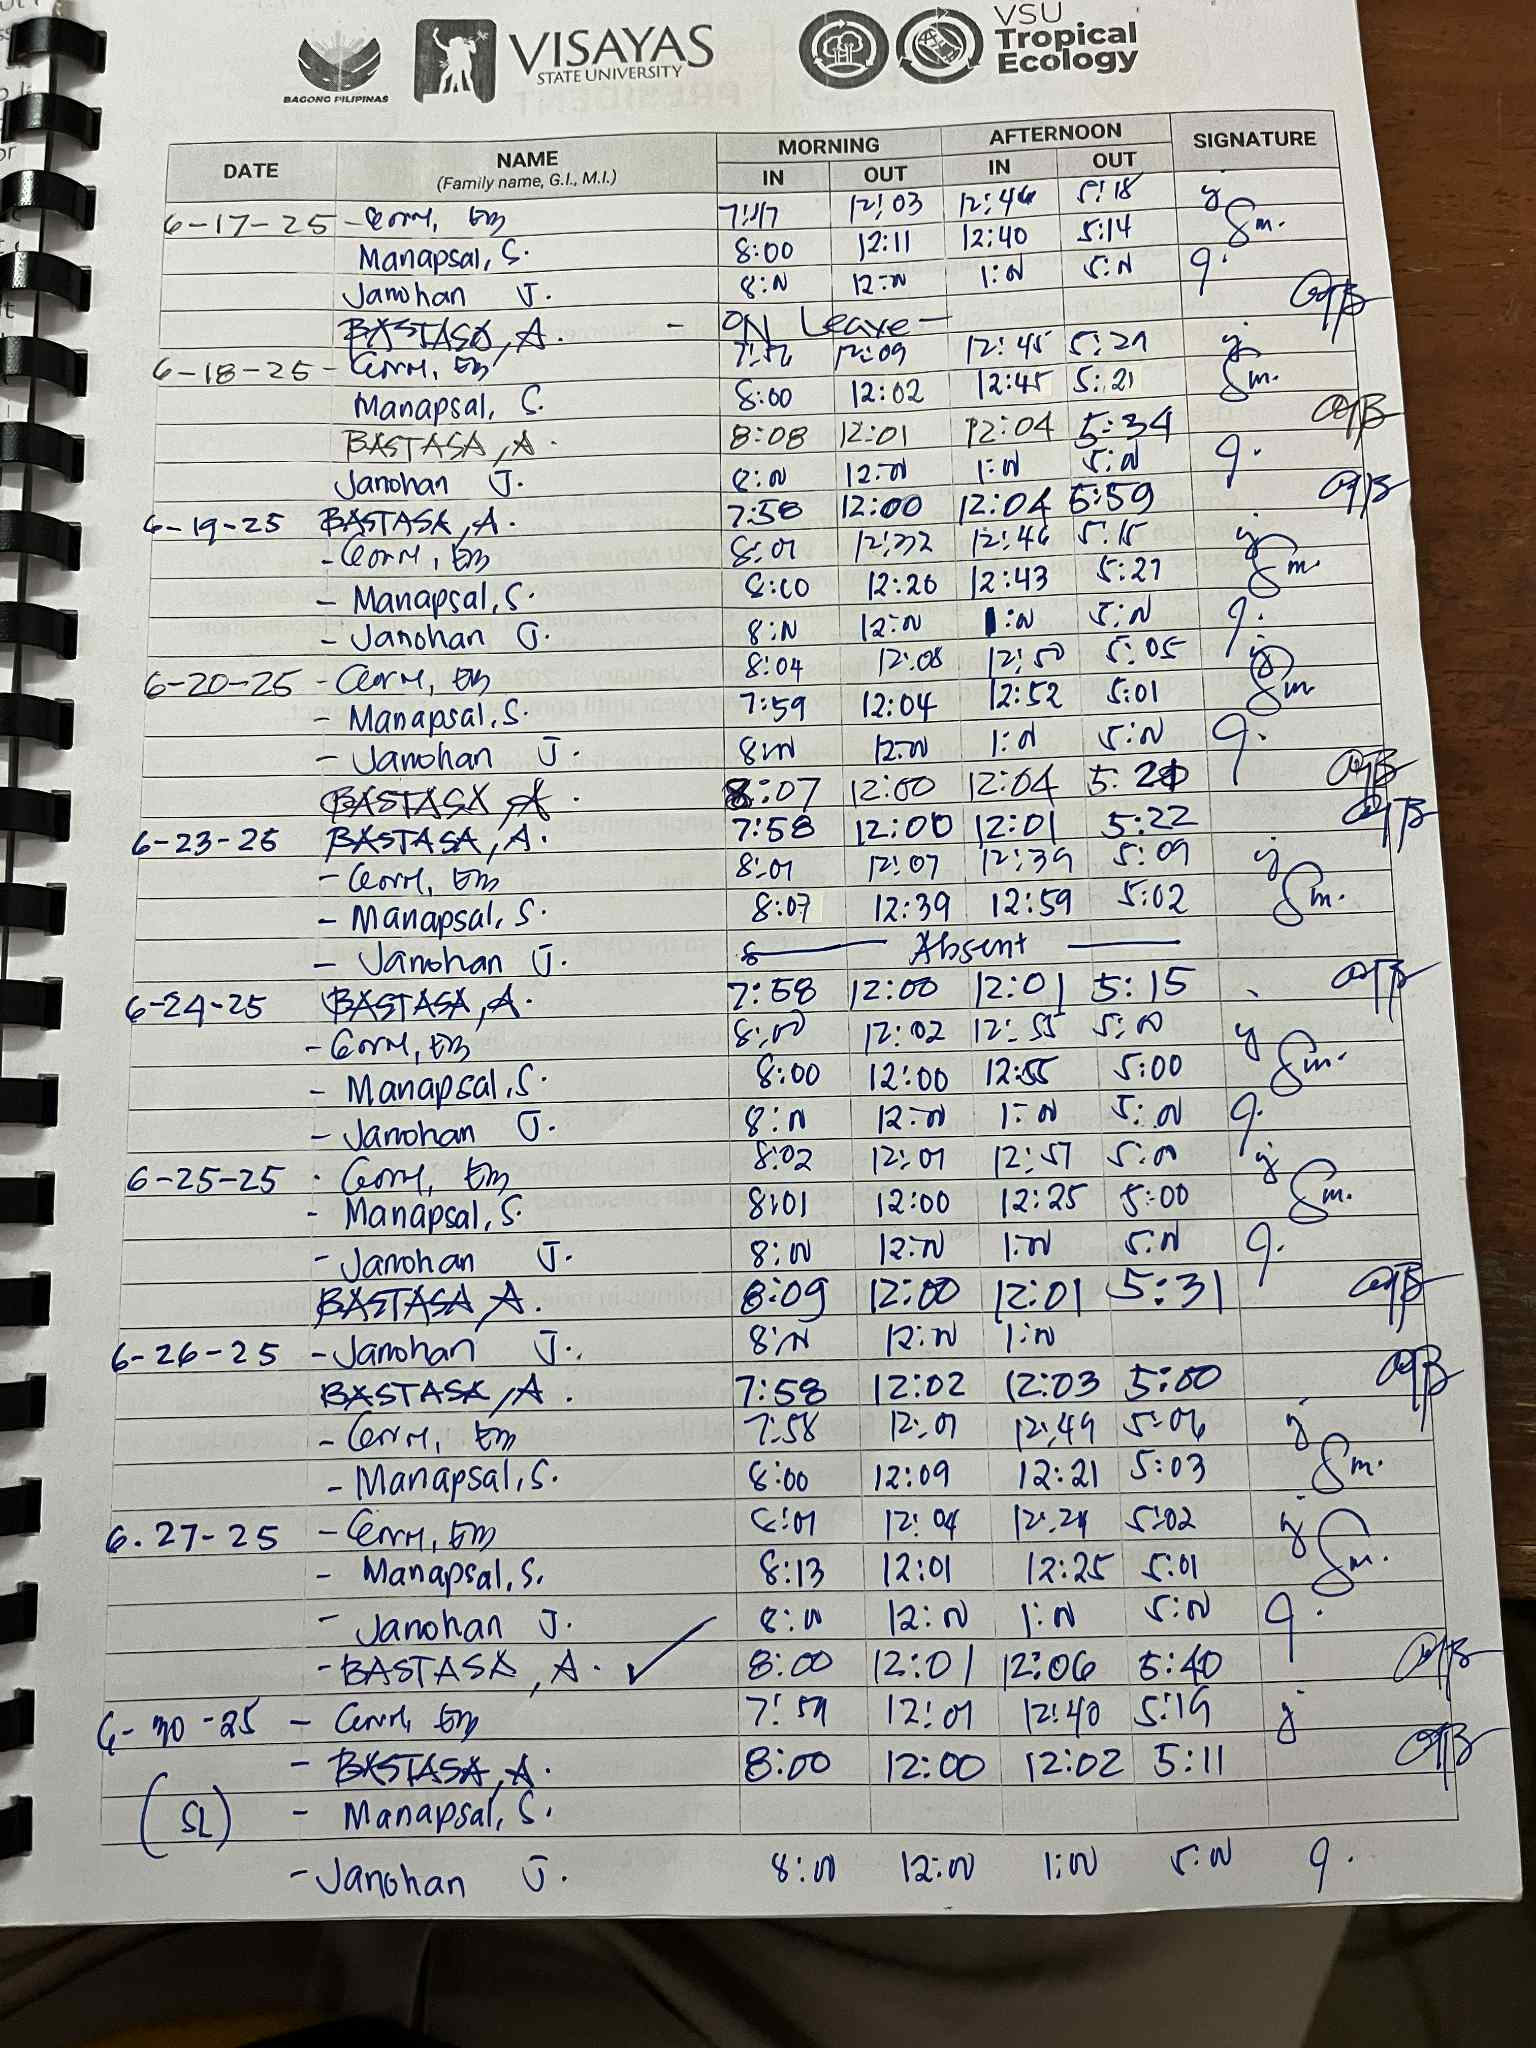 BAGONG PILIPINAS
VISAYAS
STATE UNIVERSITY
VSU
Tropical
Ecology
DATE NAME MORNING AFTERNOON SIGNATURE
(Family name, G.I., M.I.) IN OUT IN OUT
6-17-25 - Em 12:03 12:46 5:18
Manapsal, S. 8:00 12:11 12:40 5:14 Sm.
Janohan J. 8:N 12:N 1:N 5:N
BASTASA, A. - ON Leave -
6-18-25 - Em 12:09 12:45
Manapsal, S. 8:00 12:02 12:45 5:21 Sm.
BASTASA, A. 8:08 12:01 12:04 5:34
Janohan J. 8:N 12:N 1:N 5:N
6-19-25 BASTASA, A. 7:58 12:00 12:04 5:59
- Em 8:01 12:46 5:15
- Manapsal, S. 8:00 12:20 12:43 Sm.
- Janohan J. 8:N 12:N 1:N 5:N
6-20-25 - Em 8:04 12:08 12:50 5:05
- Manapsal, S. 7:59 12:04 12:52 5:01 Sm
- Janohan J. 8:N 12:N 1:N 5:N
BASTASA, A. 8:07 12:00 12:04
6-23-25 BASTASA, A. 7:58 12:00 12:01 5:22
- Em 8:01 12:07 12:39 5:09
- Manapsal, S. 8:07 12:39 12:59 5:02 Sm.
- Janohan J. Absent
6-24-25 BASTASA, A. 7:58 12:00 12:01 5:15
- Em 8:00 12:02 12:55 5:00
- Manapsal, S. 8:00 12:00 12:55 5:00 Sm.
- Janohan J. 8:N 12:N 1:N 5:N
6-25-25 - Em 8:02 12:01 12:57 5:00
- Manapsal, S. 8:01 12:00 12:25 5:00 Sm.
- Janohan J. 8:N 12:N 1:N 5:N
BASTASA, A. 8:09 12:00 12:01 5:31
6-26-25 - Janohan J. 8:N 12:N 1:N
BASTASA, A. 7:58 12:02 12:03 5:00
- Em 7:58 12:01 12:49 5:06
- Manapsal, S. 8:00 12:09 12:21 5:03 Sm.
6.27-25 - Em 8:01 12:04 5:02
- Manapsal, S. 8:13 12:01 12:25 5:01 Sm.
- Janohan J. 8:N 12:N 1:N 5:N
- BASTASA, A. ✓ 8:00 12:01 12:06 5:40
6-30-25 - Em 7:59 12:01 12:40 5:19
- BASTASA, A. 8:00 12:00 12:02 5:11
(SL) - Manapsal, S.
- Janohan J. 8:00 12:00 1:00 5:00